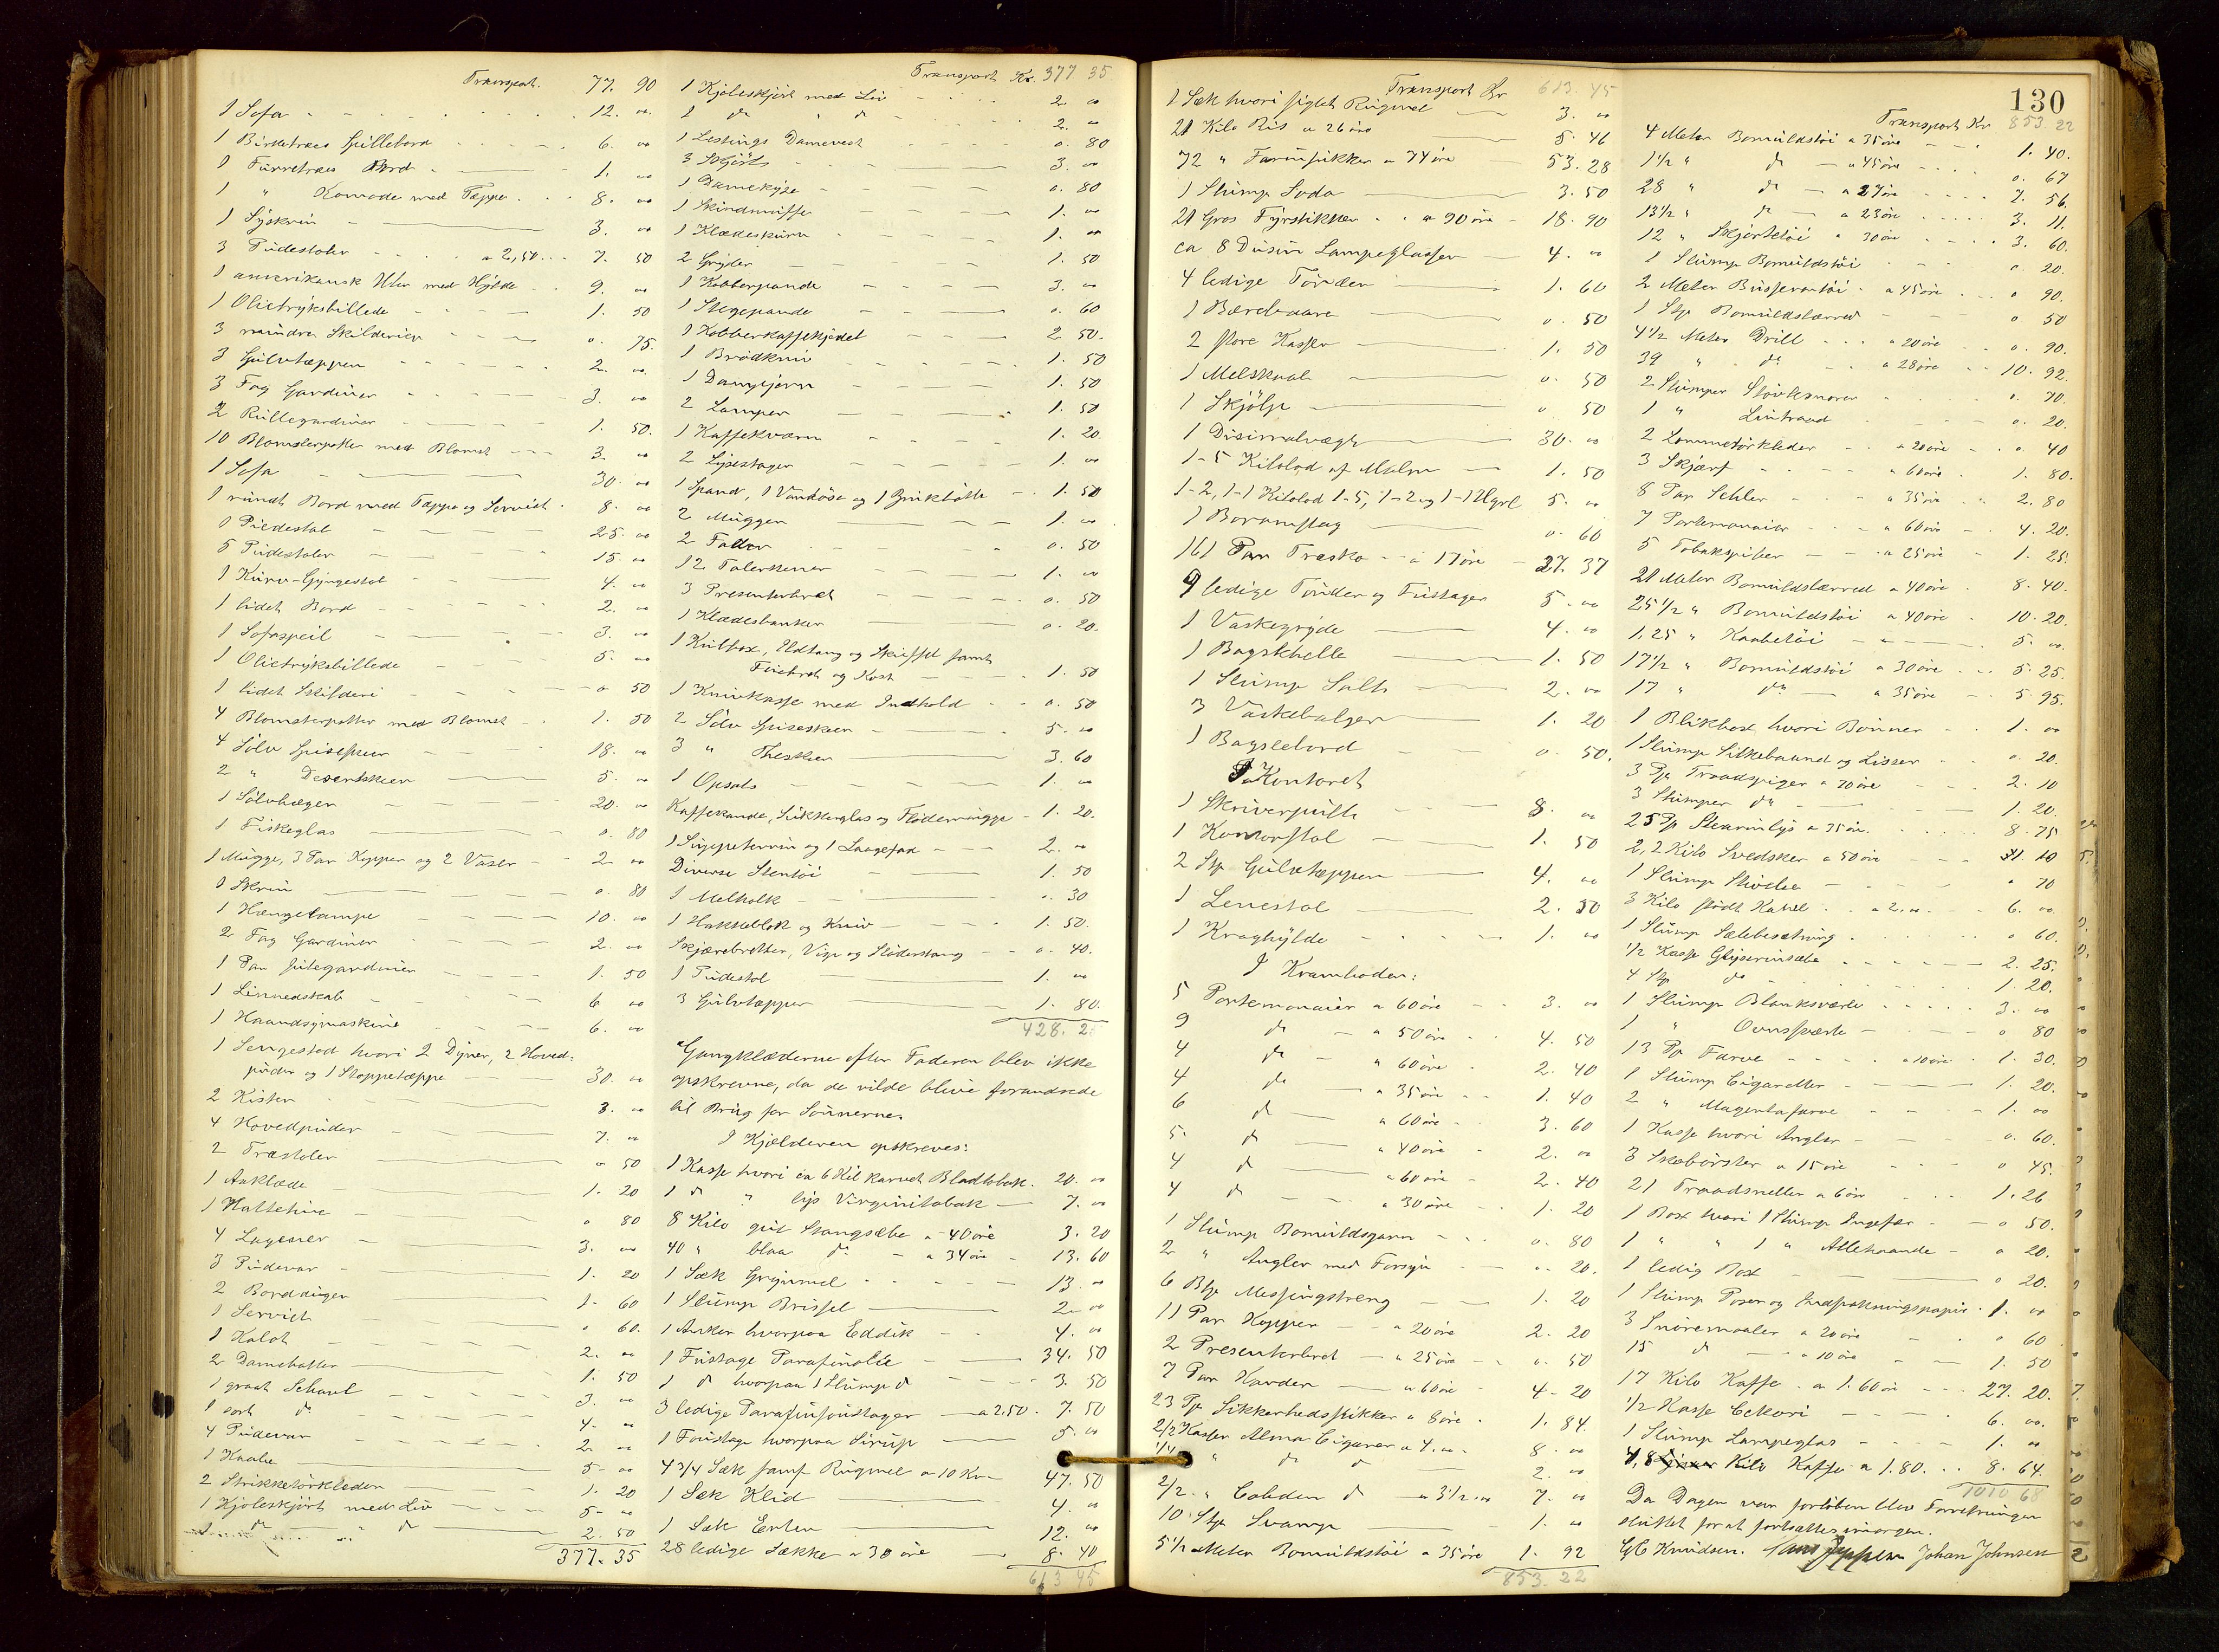 Transport. 77. 90
1 Sofa 12. 00
1 Birketræs Spillebord 6. 00
1 Furretræs Bord 1. 00
1 " Komode med Tæppe 8. 00
1 Syskrin 3. 00
3 Pudestoler a 2,50 7. 50
1 amerikansk Uhr med Hylde 9. 00
1 Olietryksbillede 1. 50
3 mindre Skilderier 0. 75.
3 Gulvtæpper 2. 00
3 Fag Gardiner 3. 00
2 Rullegardiner 1. 50.
10 Blomsterpotter med Blomst 3. 00
1 Sofa 30. 00
1 rundt Bord med Tæppe og Serviet 8. 00
1 Piedestal 25. 00
5 Pudestoler 15. 00
1 Kurv-Gyngestol 4. 00
1 lidet Bord 2. 00
1 Sofaspeil 3. 00
1 Olietryksbillede 5. 00
1 lidet Skilderi 0 50
4 Blomsterpotter med Blomst 1. 50
4 Sölv Spiseskeer 18. 00
2 " Desertskeer 5. 00
1 Sölvbæger 20. 00
1 Fiskeglas 0. 80
1 Mugge, 3 Par Kopper og 2 Vaser 2. 00
1 Skrin 0. 80
1 Hængelampe 10. 00
2 Fag Gardiner 2. 00
1 Par hvidegardiner 1. 50
1 Linnedskab 6 00
1 Haandsymaskine 6. 00
1 Sengested hvori 2 Dyner, 2 Hoved-
puder og 1 Stoppetæppe 30. 00
2 Kister 3. 00
4 Hovedpuder 7. 00
2 Træstoler 0 50
1 Aaklæde 1. 20
1 Hatteske 0 80
4 Lagener 3. 00
3 Pudevar 1. 20
2 Borddúger 1. 60
1 Serviet 0 60.
1 Kalot 2. 00
2 Damehatter 1. 50
1 graat Schavl 3. 00
1 sort do 4. 00
4 Pudevar 2. 00
1 Kaabe 5. 00
2 Strikketörklæder 1. 20
1 Kjoleskjört med Liv 5. 00
1 do " do 2. 50
377. 35
Transport Kr. 377 35
1 Kjoleskjört med Liv 2. 00
1 do " do 2. 00
1 Lestings Damevest 0. 80
3 Skjörts 3. 00
1 Damekyse 0. 80
1 Skindmuffe 1. 00
1 Klædeskurv 1. 00
2 Gryder 1. 50
1 Kobberpande 3. 00
1 Stegepande 0. 60
1 Kobberkaffekjedel 2 50.
1 Brödkniv 1. 50
1 Dampjern 1. 50
2 Lamper 1. 50
1 Kaffekværn 1. 20.
2 Lysestager 1. 00
1 Spand, 1 Vandöse og 1 Blikbötte 1. 50
2 Mugger 1. 00
2 Fade 0. 50
12 Talerkener 1. 00
3 Presenterbret 0. 50
1 Klædesbanker 0. 20.
1 Kulbox, Ildtang og Skuffel samt
Feiebret og Kost 1. 50
1 Knivkasse med Indhold 0. 50
2 Sölv Spiseskeer 5. 00
3 " Theskeer 3. 60
1 Opsats 1. 00
Kaffekande, Sukkerglas og Flödemugge 1. 20.
1 Suppeterrin og 1 Laagefad 2. 00
Diverse Stentöi 1. 50
1 Melholk 0. 30
1 Hakkeblok og Kniv 1. 50.
Skjærebretter, Visp og Stöderstang 0. 40.
1 Pudestol 1. 00
3 Gulvtæpper 1. 80.
428. 2
Gangklæderne efter Faderen blev ikke
opskrevne, da de vilde blive forandrede
til Brug for Sönnerne.
I Kjælderen opskreves:
1 Kasse hvori ca 6 Kil karvet Bladtobak. 20. 00
1 do " lys Virginitobak 7. 00
8 Kilo gul Stangsæbe a 40 öre 3. 20
40 " blaa do a 34 öre 13. 60
1 Sæk Grynmel 13. 00
1 Slump Brissel 2. 00
1 Anker hvorpaa Eddik 4. 00
1 Fustage Parafinolie 34. 50
1 do hvorpaa 1 Slump do 3. 50
3 ledige Parafinfustager a 2,50. 7. 50
1 Fustage hvorpaa Sirup 5. 00
4 3/4 Sæk samf. Rugmel a 10 Kr 47. 50
1 Sæk Klid 4. 00
1 Sæk Erter 12. 00
28 ledige Sække a 30 öre 8. 40
613 45
Transport Kr 613. 45
1 Sæk hvori sigtet Rugmel 3. 00
21 Kilo Ris a 26 öre 5. 46
72 " Farinsukker a 74 öre 53. 28
1 Slump Soda 3. 50
21 Gros Fyrstikker a 90 öre 18. 90
ca 8 Dusin Lampeglasser 4. 00
4 ledige Tönder 1. 60
1 Bærebaare 0. 50
2 store Kasser 1. 50
1 Melskaal 0. 50
1 Skjölp 0 50
1 Disimalvægt 30. 00
1-5 Kilolod af Malm 1. 50
1-2, 1-1 Kilolod 1-5, 1-2 og 1-1 Hgrl 5. 00
1 Boramstag 0. 60
161 Par Træsko a 17 öre 27. 37
9 ledige Tönder og Fustager 5. 00
1 Vaskegryde 4. 00
1 Bagstehelle 1. 50
1 Slump Salt 2. 00
3 Vaskebalger 1. 20
1 Bagstebord 0. 50.
På Kontoret
1 Skriverpult 8. 00
1 Kontorstol 1. 50
2 Stp Gulvtæpper 4. 00
1 Lenestol 2. 50
1 Kraghylde 1. 00
I Kramboden:
5 Portemonaier a 60 öre 3. 00
9 do a 50 öre 4. 50
4 do a 60 öre 2. 40
4 do a 35 öre 1. 40
6 do a 60 öre 3. 60
5 do a 40 öre 2. 00
4 do a 60 öre 2. 40
4 do a 30 öre 1. 20
1 Slump Bomuldsgarn 0. 80
2 " Angler med Forsyn 0. 20.
6 Btp Messingstreng 1. 20
11 Par Kopper a 20 öre 2. 20
2 Presenterbret a 25 öre 0. 50
7 Par Karder a 60 öre 4. 20
23 Pp Sikkerhedsstikker a 8 öre 1. 84.
2/2 Kasser Alma Cigarer a 4.00 8. 00
1/4 " do do 2. 00
2/2 " Cobden do a 3 1/2 00 7. 00
10 Stp Svamp 1. 00
5 1/2 Meter Bomuldstöi a 35 öre 1. 92
853. 22
130
Transport Kr 853. 22
4 Meter Bomuldstöi a 35 öre 1. 40.
1 1/2 " do a 45 öre 0. 67
28 " do a 27 öre 7. 56.
13 1/2 " do a 23 öre 3. 11.
12 " Skjortetöi a 30 öre 3. 60.
1 Slump Bomuldstöi 0. 20.
2 Meter Busserontöi a 45 öre 0 90.
1 Stp Bomuldslærred 0 50
4 1/2 Meter Drill a 20 öre 0. 90.
39 " do a 28 öre 10. 92.
2 Slumper Stövksnorer 0. 70.
1 " Lintraad 0. 20.
2 Lommetörklæder a 20 öre 0. 40
3 Skjærf a 60 öre 1. 80.
8 Par Sehler a 35 öre 2. 80
7 Portemonaier a 60 öre 4. 20.
5 Tobakspiber a 25 öre 1. 25.
21 Meter Bomuldslærred a 40 öre 8. 40.
25 1/2 " Bomuldstöi a 40 öre 10. 20.
1,25 " Kaabetöi 5. 00.
17 1/2 " Bomuldstöi a 30 öre 5. 25.
17 " do a 35 öre 5. 95.
1 Blikbox hvori Bönner 1. 00
1 Slump Silkebaand og Lisser 0. 20.
3 Pp Traadspiger a 70 öre 2. 10
3 Slumper do 1. 20.
25 Pp Stearinlys a 35 öre 8. 75
2,2 Kilo Svedsker a 50 öre 1. 10
1 Slump Stivelse 0 70
3 Kilo stödt Kanel a 2.00 6. 00.
1 Slump Selebesætning 0 60.
1/2 Kasse Glyserinsæbe 2. 25.
4 Stp do 1. 20.
1 Slump Blanksværte 3. 00
1 " Ovnsværte 0 80
13 Pp Farve a 10 öre 1. 30.
1 Slump Cigaretter 1. 20.
2 " Magentafarve 1. 00
1 Kasse hvori Angler 0. 60.
3 Skobörster a 15 öre 0 45.
21 Traadsneller a 6 öre 1. 26
1 Box hvori 1 Slump Ingefær 0 50.
1 " " 1 " Allehaande 0 20.
1 ledig Box 0 20.
1 Slump Poser og Indpakningspapir 1. 00
3 Snöremaaler a 20 öre 0 60
15 do a 10 öre 1. 50
17 Kilo Kaffe a 1.60 öre 27. 20.
1/2 Kasse Cekori 6. 00.
1 Slump Lampeglas 1. 00
4,8 Kilo Kaffe a 1.80. 8. 64.
1010 68
Da Dagen var forlöben blev Forretningen
sluttet for at fortsættes imorgen.
G C Knudsen. Johan Johnsen